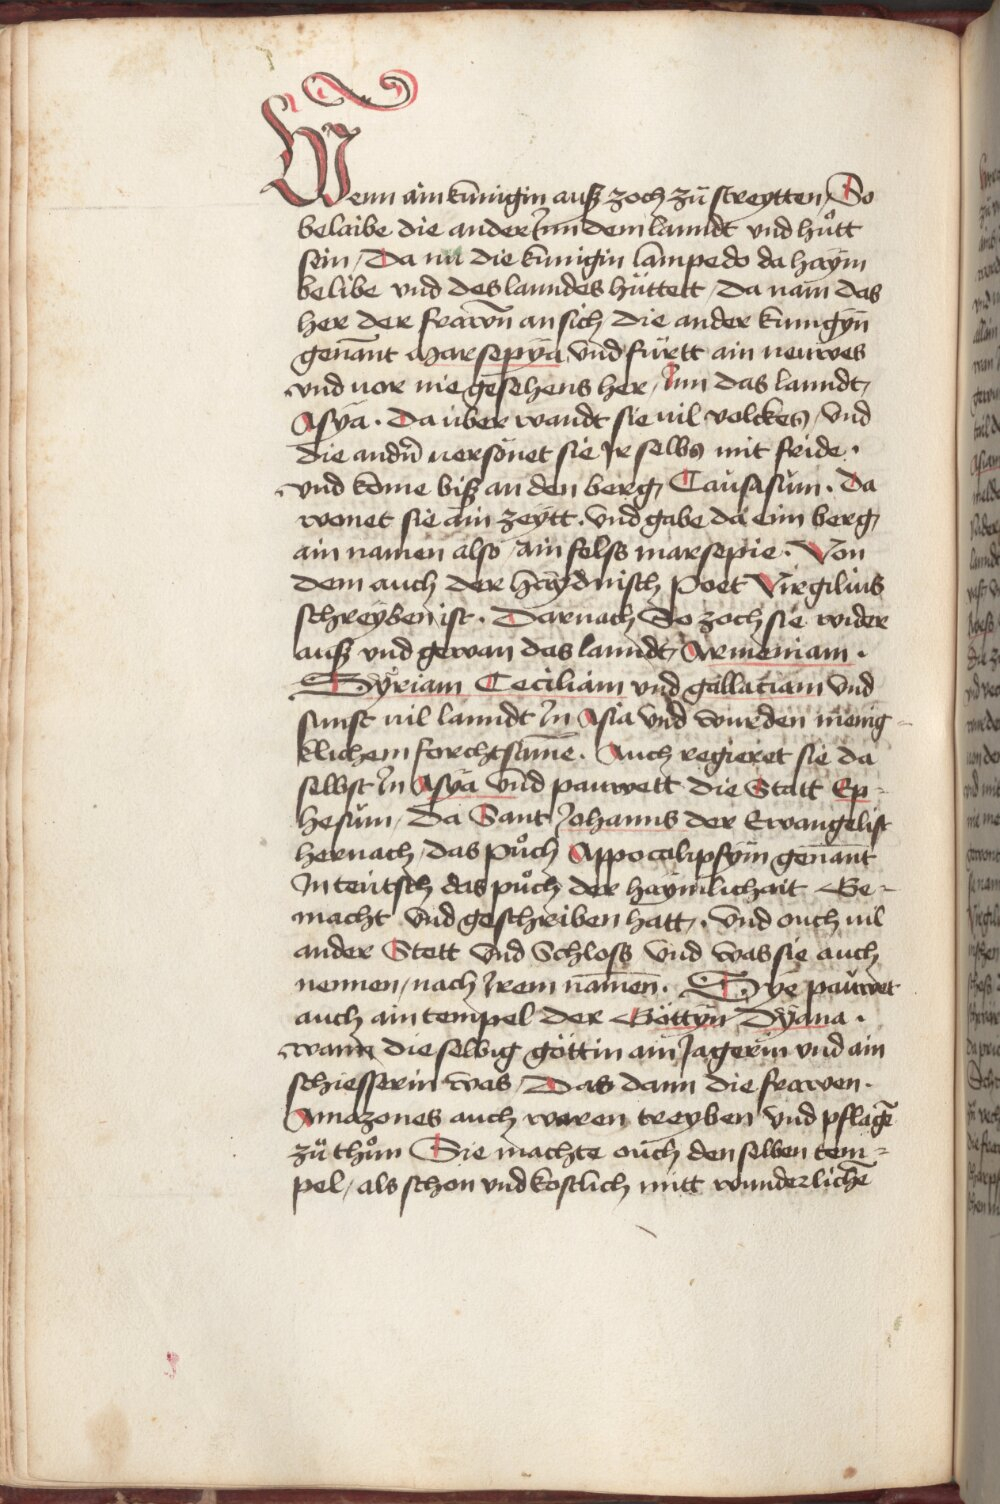 Wenn ain kunigin auß zoch zů streytten / So
belaibe die ander Jnn dem lanndt vnd hůtt
sein / Da nů die kunigin lampedo da haym
belibe vnd des lanndes hüttett / Da nam das
her der frawen̄ an sich die ander kunigyn
genan̄t Marsepya vnd fürtt ain neuwes
vnd vor nie gesehens her / Jnn das lanndt
Asya . Da über wandt sie vil volckes / vnd
die andn̄ versönet sie Jr selbs mit fride .
vnd kome biß an den berg Causasum . Da
wonet sie ain zeytt . vnd gabe da eim berg
ain namen also / ain felss marsepie . Von
dem auch der haydnisch Poet Virgilius
schreyben ist . Darnach So zoch sie wider
auß vnd gewan das lanndt Armeniam .
Syriam Ceciliam vnd gallaciam vnd
sunst vil lanndt Jn Asia vnd wurden menig -
klichem forchtsam̄e . Auch regieret sie da
selbst Jn Asya vnd pauwett die Statt Ep =
hesum / Da Sant Johanns der Ewangelist
hernach / das půch Appocalipsym genan̄t
Jn teutsch das půch der haymlichait Ge -
macht vnd geschriben hatt . vnd ouch vil
ander Stett vnd Schloss vnd was sie auch
nennen / nach Jrem namen̄ . Sye pauwet
auch ain tempel der Göttyn Dyana .
wann die selbig göttin ain Jagerin vnd ain
schiesserin was / Das dann die frawen .
Amazones auch waren treyben vnd pflagē
zů thůn Sie machte ouch den selben tem =
pel / als schon vnd kostlich mitt wunderlichē